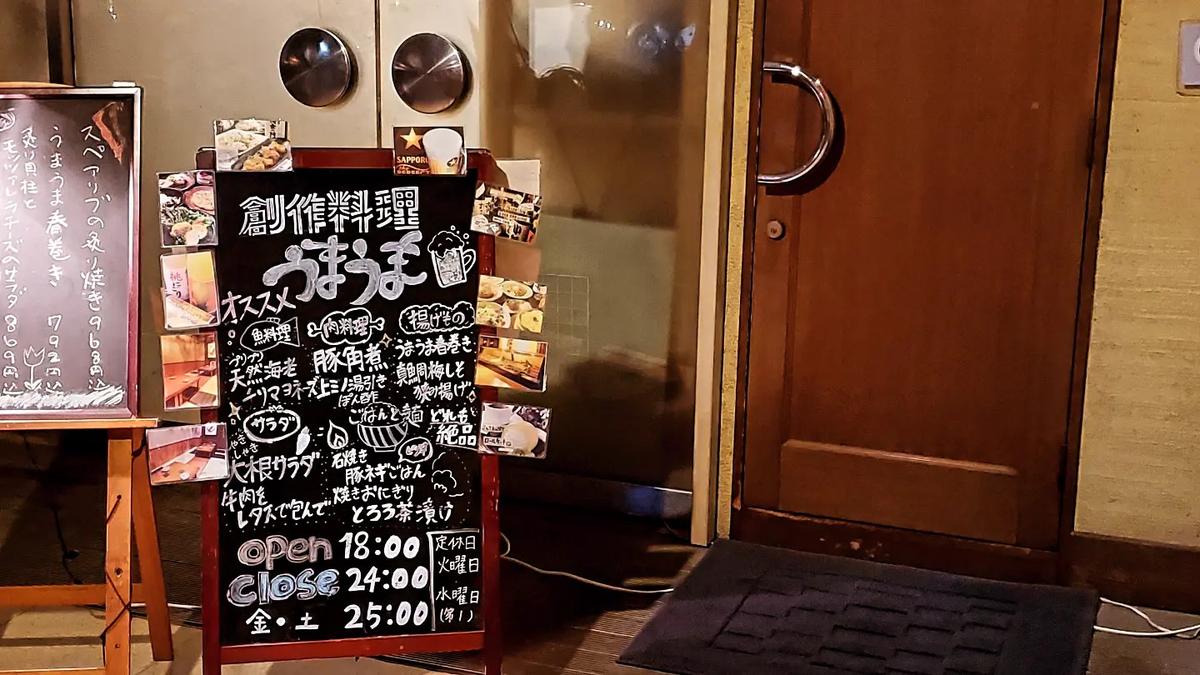 スペアリブの炙り焼き 968円
うまうま春巻き 792円
炙り貝柱と
モッツァレラチーズのサラダ 869円
SAPPORO
創作料理
うまうま
オススメ
魚料理
プリプリ
天然海老
マヨネーズ
肉料理
豚角煮
上ミノ湯引き
ぽん酢
揚げもの
うまうま春巻き
真鯛梅しそ
挟み揚げ
サラダ
しゃきしゃき
大根サラダ
牛肉を
レタスで包んで
ごはんと麺
石焼き
豚ネギごはん
焼きおにぎり
とろろ茶漬け
どれも
絶品
open 18:00
close 24:00
金・土 25:00
定休日
火曜日
水曜日
(第1)